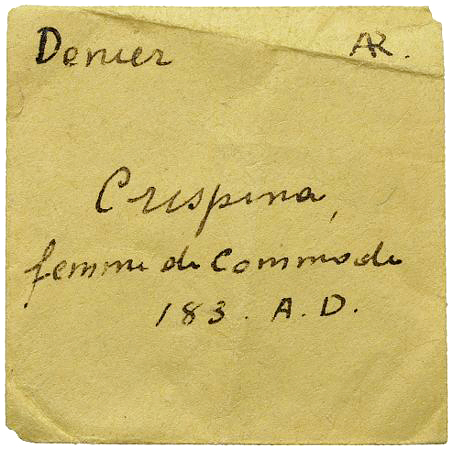 Denier AR.
Crispina,
femme de Commode
183. A.D.